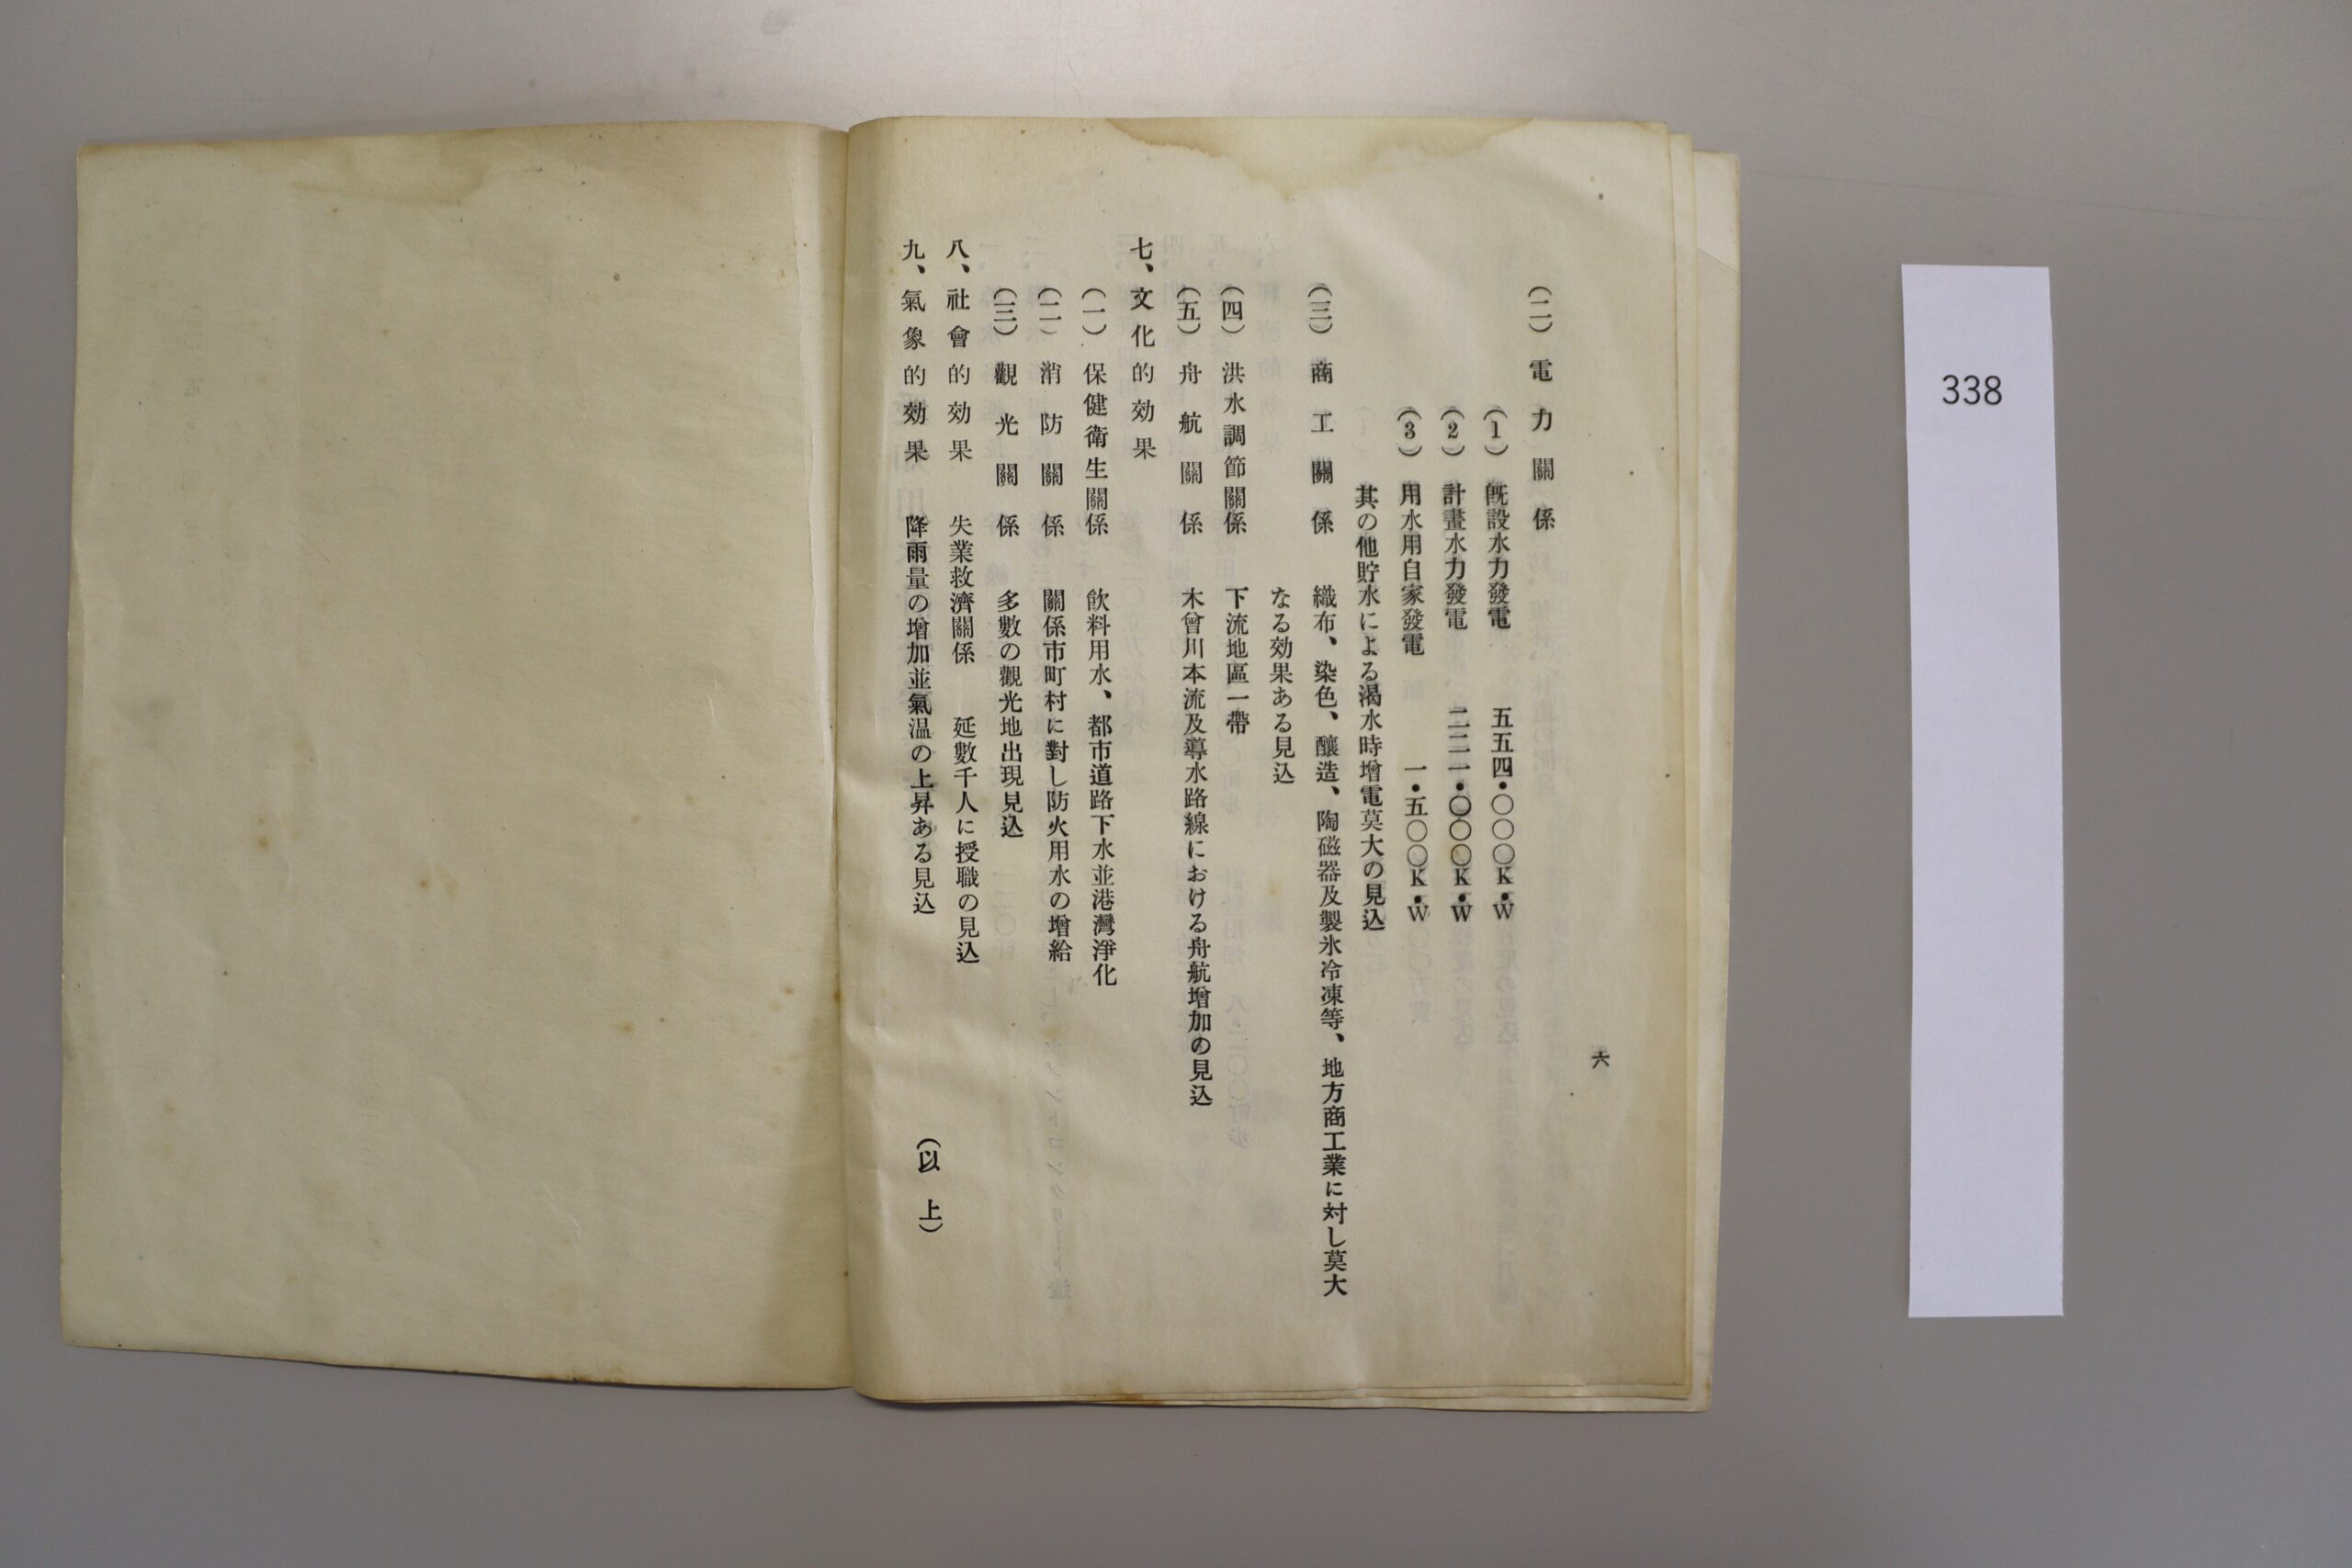 六
(二) 電力關係
(1) 既設水力發電 五五四・〇〇〇K・W
(2) 計畫水力發電 二二一・〇〇〇K・W
(3) 用水用自家發電 一・五〇〇K・W
其の他貯水による渇水時增電莫大の見込
(三) 商工關係 織布、染色、釀造、陶磁器及製氷冷凍等、地方商工業に対し莫大
なる効果ある見込
(四) 洪水調節關係 下流地區一帶
(五) 舟航關係 木曾川本流及導水路線における舟航增加の見込
七、文化的効果
(一) 保健衛生關係 飲料用水、都市道路下水並港灣淨化
(二) 消防關係 關係市町村に對し防火用水の增給
(三) 觀光關係 多數の觀光地出現見込
八、社會的効果 失業救濟關係 延數千人に授職の見込
九、氣象的効果 降雨量の增加並氣温の上昇ある見込
(以上)
338